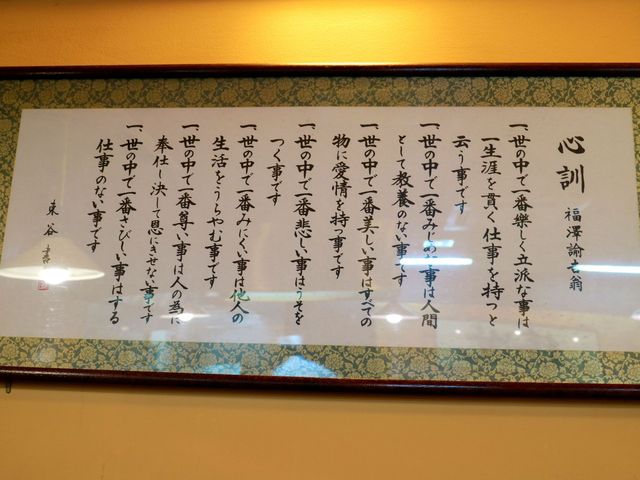 心訓
福澤諭吉翁
一、世の中で一番楽しく立派な事は
一生涯を貫く仕事を持つと
云う事です
一、世の中で一番みじめな事は人間
として教養のない事です
一、世の中で一番美しい事はすべての
物に愛情を持つ事です
一、世の中で一番悲しい事はうそを
つく事です
一、世の中で一番みにくい事は他人の
生活をうらやむ事です
一、世の中で一番尊い事は人の為に
奉仕し決して恩にきせない事です
一、世の中で一番さびしい事はする
仕事のない事です
東谷 書